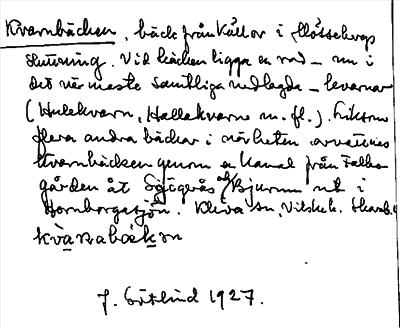 Kvarnbäcken, bäck från källor i Mösseberg
sluttning. Vid bäcken ligga en rad – nu i
det närmaste samtliga nedlagda – kvarnar
(Hulekvarn, Hallekvarn m. fl.). Liksom
flera andra bäckar i närheten avvattnas
kvarnbäcken genom en kanal från Falke-
gården åt Sätgärås och Bjurum ut i
Hornborgasjön. Kleva sn, Vilske h. Skarab.
kvarnabäkən
J. Götlind 1927.